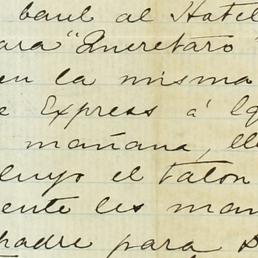 baul al Hotel
ara "Queretaro"
en la misma
e Express á
mañana,
luyo el talon
ente les man
padre para